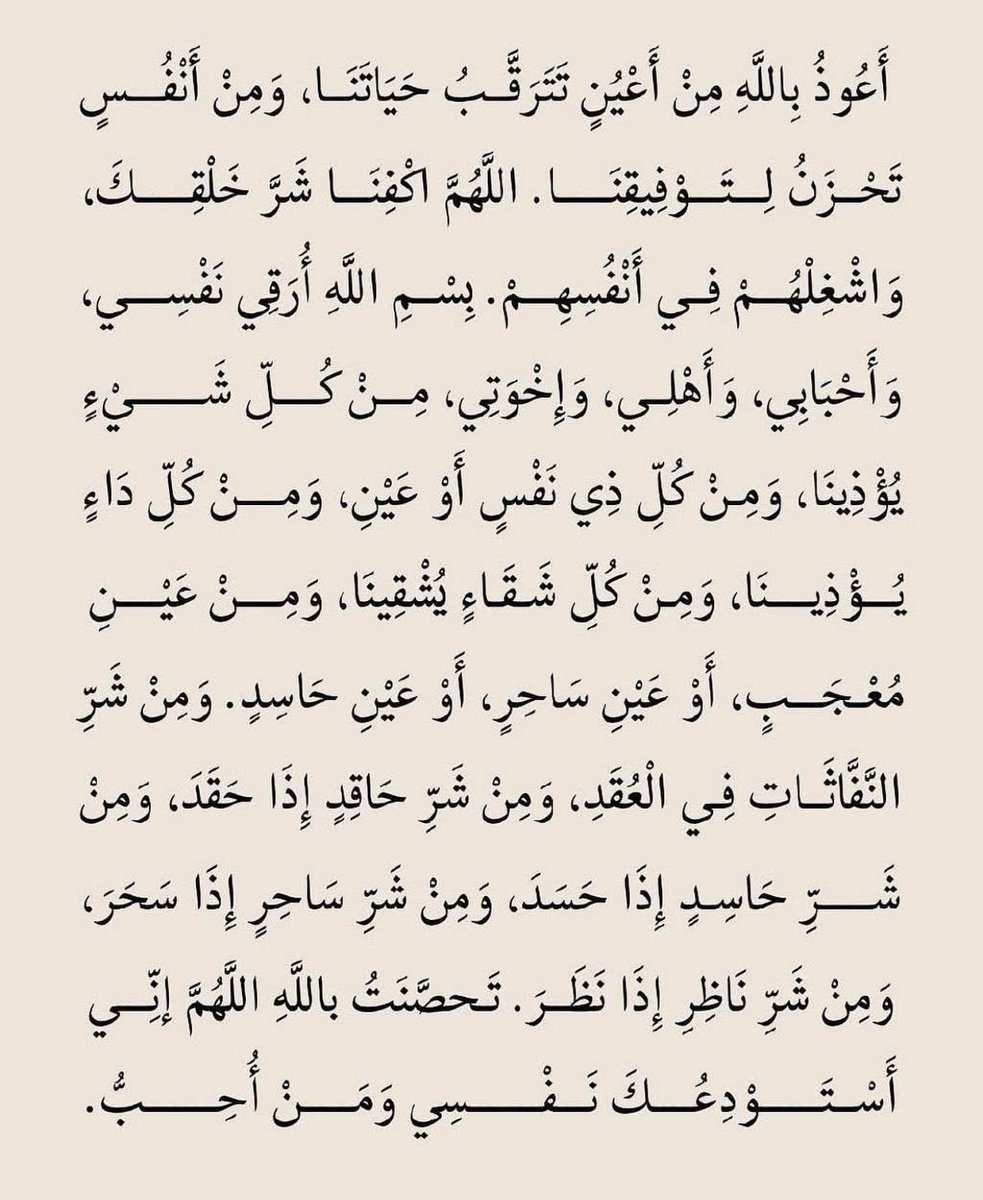 أَعُوذُ بِاللَّهِ مِنْ أَعْيُنٍ تَتَرَقَّـبُ حَيَاتَنَـا، وَمِنْ أَنْفُـسٍ
تَحْـزَنُ لِـتَـوْفِيقِنَـا. اللَّهُمَّ اكْفِنَـا شَرَّ خَلْقِـكَ،
وَاشْغِلْهُـمْ فِـي أَنْفُسِهِـمْ. بِسْـمِ اللَّهِ أُرَقِي نَفْسِـي،
وَأَحْبَابِي، وَأَهْلِـي، وَإِخْوَتِي، مِـنْ كُـلِّ شَـيْءٍ
يُؤْذِينَا، وَمِـنْ كُلِّ ذِي نَفْسٍ أَوْ عَيْنِ، وَمِـنْ كُلِّ دَاءٍ
يُـؤْذِيـنَا، وَمِـنْ كُلِّ شَـقَـاءٍ يُشْقِينَا، وَمِـنْ عَيْـنِ
مُعْـجَـبٍ، أَوْ عَيْنِ سَاحِرٍ، أَوْ عَيْنِ حَاسِدٍ. وَمِنْ شَرِّ
النَّفَّاثَـاتِ فِـي الْعُقَدِ، وَمِنْ شَرِّ حَاقِدٍ إِذَا حَقَدَ، وَمِنْ
شَـرِّ حَاسِـدٍ إِذَا حَسَدَ، وَمِنْ شَرِّ سَاحِرٍ إِذَا سَحَرَ،
وَمِنْ شَرِّ نَاظِرِ إِذَا نَظَـرَ. تَـحصَّنَتُ باللَّهِ اللَّهُمَّ إنِّـي
أَسْـتَـوْدِعُـكَ نَـفْـسِي وَمَـنْ أُحِـبُّ.